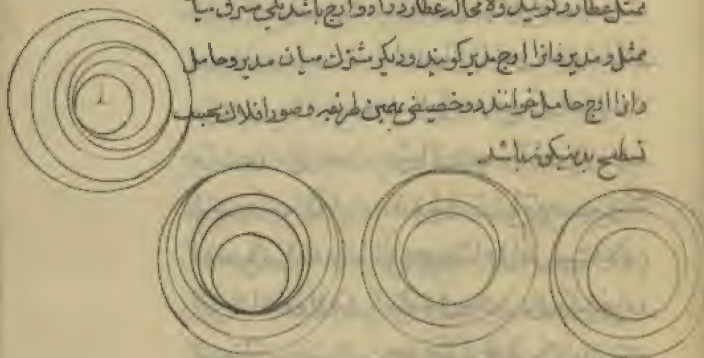 ممثل عطارد گویند ولا محاله عطارد را دو اوج باشد یکی مشترک میا
ممثل و مدیر و انرا اوج مدیر کویند ودیکر مشترک میان مدیر وحامل
وانرا اوج حامل خوانند و دو حضیض بهمین طریقه و صور افلاک بحسب
تسطیح بدینکونه باشد